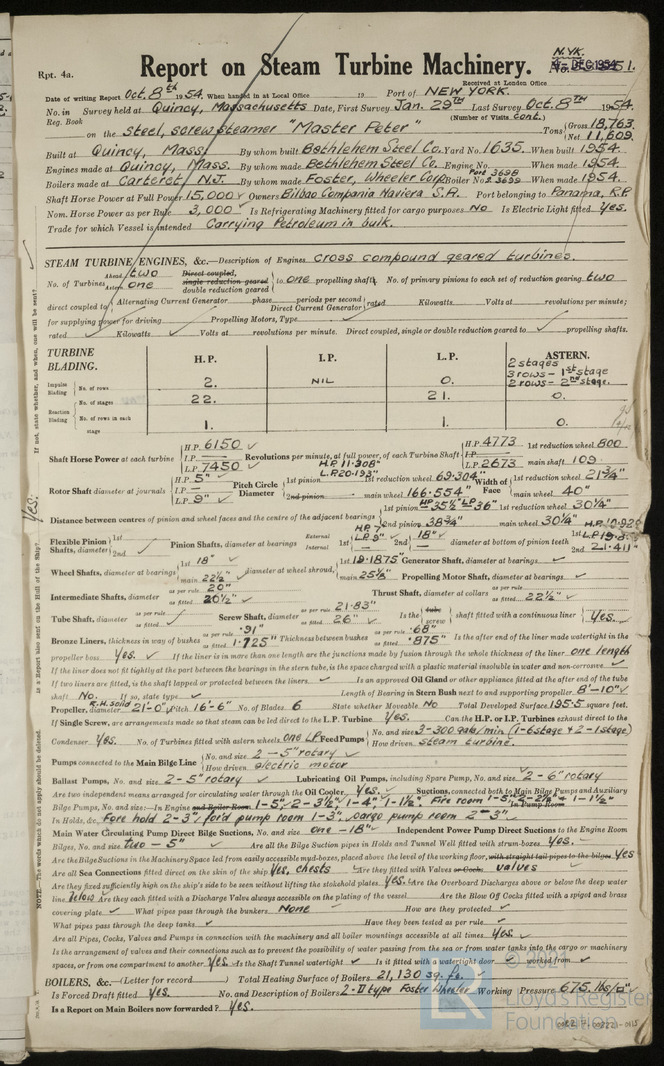 Rpt. 4a.
Report on Steam Turbine Machinery.
N.YK.
No. 51.
4 - DEC 1954
Received at London Office
Date of writing Report Oct. 8th 1954. When handed in at Local Office 19 Port of NEW YORK.
No. in Reg. Book Survey held at Quincy, Massachusetts Date, First Survey Jan. 29TH Last Survey Oct. 8TH 1954.
(Number of Visits Cont.)
on the Steel, screw steamer "Master Peter" Tons Gross 18,763. Net 11,609.
Built at Quincy, Mass. By whom built Bethlehem Steel Co. Yard No. 1635. When built 1954.
Engines made at Quincy, Mass. By whom made Bethlehem Steel Co. Engine No. When made 1954.
Boilers made at Carteret N.J. By whom made Foster, Wheeler Corp. Boiler No. Port 3698 2 3699 When made 1954.
Shaft Horse Power at Full Power 15,000 Owners Bilbao Compania Naviera S.A. Port belonging to Panama, R.P.
Nom. Horse Power as per Rule 3,000 Is Refrigerating Machinery fitted for cargo purposes No Is Electric Light fitted Yes.
Trade for which Vessel is intended Carrying Petroleum in bulk.
STEAM TURBINE ENGINES, &c.—Description of Engines Cross compound geared turbines.
No. of Turbines Ahead two Astern one Direct coupled, single reduction geared double reduction geared to one propelling shaft. No. of primary pinions to each set of reduction gearing two
direct coupled to Alternating Current Generator phase periods per second Direct Current Generator rated Kilowatts Volts at revolutions per minute;
for supplying power for driving Propelling Motors, Type
rated Kilowatts Volts at revolutions per minute. Direct coupled, single or double reduction geared to propelling shafts.
TURBINE BLADING. H.P. I.P. L.P. ASTERN.
Impulse Blading No. of rows 2. NIL 0. 2 stages 3 rows - 1st stage 2 rows - 2nd stage.
Reaction Blading No. of stages 22. 21. 0.
No. of rows in each stage 1. 1. 0.
Shaft Horse Power at each turbine H.P. 6150 I.P. L.P. 7450 Revolutions per minute, at full power, of each Turbine Shaft H.P. 4773 I.P. L.P. 2673 1st reduction wheel 800 main shaft 109
Rotor Shaft diameter at journals H.P. 5" I.P. L.P. 9" Pitch Circle Diameter 1st pinion H.P. 11.308" L.P. 20.193" 2nd pinion 1st reduction wheel 69.304" main wheel 166.554" Width of Face 1st reduction wheel 21¾" main wheel 40"
Distance between centres of pinion and wheel faces and the centre of the adjacent bearings 1st pinion HP 35½" LP 36" 2nd pinion 38¾" 1st reduction wheel 30¼" main wheel 30¼"
Flexible Pinion Shafts, diameter 1st 2nd Pinion Shafts, diameter at bearings External Internal 1st H.P. 7" L.P. 9" 2nd 18" diameter at bottom of pinion teeth 1st 2nd 21.411"
Wheel Shafts, diameter at bearings 1st 18" main 22½" diameter at wheel shroud, 1st 19.1875" main 25⅝" Generator Shaft, diameter at bearings Propelling Motor Shaft, diameter at bearings
Intermediate Shafts, diameter as per rule 20" as fitted 20½" Thrust Shaft, diameter at collars as per rule as fitted 22½"
Tube Shaft, diameter as per rule as fitted Screw Shaft, diameter as per rule 21.83 as fitted 26" Is the tube screw shaft fitted with a continuous liner Yes.
Bronze Liners, thickness in way of bushes as per rule .91" as fitted 1.125" Thickness between bushes as per rule .68" as fitted .875" Is the after end of the liner made watertight in the
propeller boss Yes. If the liner is in more than one length are the junctions made by fusion through the whole thickness of the liner one length
If the liner does not fit tightly at the part between the bearings in the stern tube, is the space charged with a plastic material insoluble in water and non-corrosive
If two liners are fitted, is the shaft lapped or protected between the liners Is an approved Oil Gland or other appliance fitted at the after end of the tube
shaft No. If so, state type Length of Bearing in Stern Bush next to and supporting propeller 8'-10"
Propeller, diameter R.H. Solid 21'-0" Pitch 16'-6" No. of Blades 6 State whether Moveable No Total Developed Surface 195.5 square feet.
If Single Screw, are arrangements made so that steam can be led direct to the L.P. Turbine Yes. Can the H.P. or I.P. Turbines exhaust direct to the
Condenser Yes. No. of Turbines fitted with astern wheels one L.P. Feed Pumps No. and size 3-300 gals/min (1-6 stage & 2-1 stage) How driven Steam turbine.
Pumps connected to the Main Bilge Line No. and size 2-5" rotary How driven electric motor
Ballast Pumps, No. and size 2-5" rotary Lubricating Oil Pumps, including Spare Pump, No. and size 2-6" rotary
Are two independent means arranged for circulating water through the Oil Cooler Yes. Suctions, connected both to Main Bilge Pumps and Auxiliary
Bilge Pumps, No. and size:—In Engine and Boiler Room 1-5", 2-3½", 1-4", 1-1½". Fire room 1-5", 2-2½" & 1-1½" In Pump Room
In Holds, &c. Fore hold 2-3", for'd pump room 1-3", cargo pump room 2-3".
Main Water Circulating Pump Direct Bilge Suctions, No. and size one-18" Independent Power Pump Direct Suctions to the Engine Room
Bilges, No. and size two-5" Are all the Bilge Suction pipes in Holds and Tunnel Well fitted with strum-boxes Yes.
Are the Bilge Suctions in the Machinery Space led from easily accessible mud-boxes, placed above the level of the working floor, with straight tail pipes to the bilges Yes
Are all Sea Connections fitted direct on the skin of the ship Yes, chests Are they fitted with Valves or Cocks valves
Are they fixed sufficiently high on the ship's side to be seen without lifting the stokehold plates Yes. Are the Overboard Discharges above or below the deep water
line Below Are they each fitted with a Discharge Valve always accessible on the plating of the vessel Are the Blow Off Cocks fitted with a spigot and brass
covering plate What pipes pass through the bunkers None How are they protected
What pipes pass through the deep tanks Have they been tested as per rule
Are all Pipes, Cocks, Valves and Pumps in connection with the machinery and all boiler mountings accessible at all times Yes.
Is the arrangement of valves and their connections such as to prevent the possibility of water passing from the sea or from water tanks into the cargo or machinery
spaces, or from one compartment to another Yes. Is the Shaft Tunnel watertight Is it fitted with a watertight door worked from
BOILERS, &c.—(Letter for record) Total Heating Surface of Boilers 21,130 sq. ft.
Is Forced Draft fitted Yes. No. and Description of Boilers 2-D type Foster Wheeler Working Pressure 675 lbs/□"
Is a Report on Main Boilers now forwarded? Yes.
LR
Lloyd's Register
Foundation